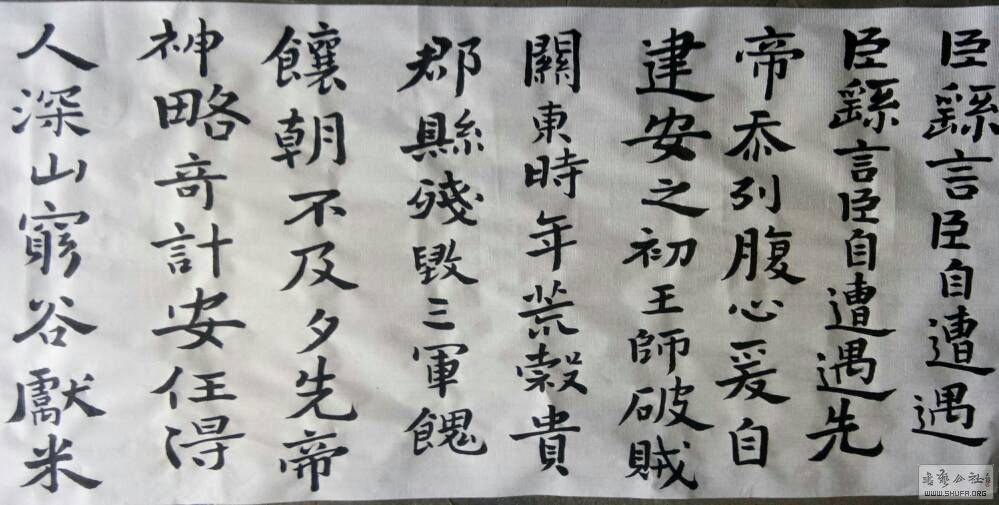 臣繇言臣自遭遇
臣繇言臣自遭遇先
帝忝列腹心爰自
建安之初王師破賊
關東時年荒穀貴
郡縣殘毀三軍餽
饟朝不及夕先帝
神略奇計安任得
人深山窮谷獻米
书艺公社
WWW.SHUFA.ORG